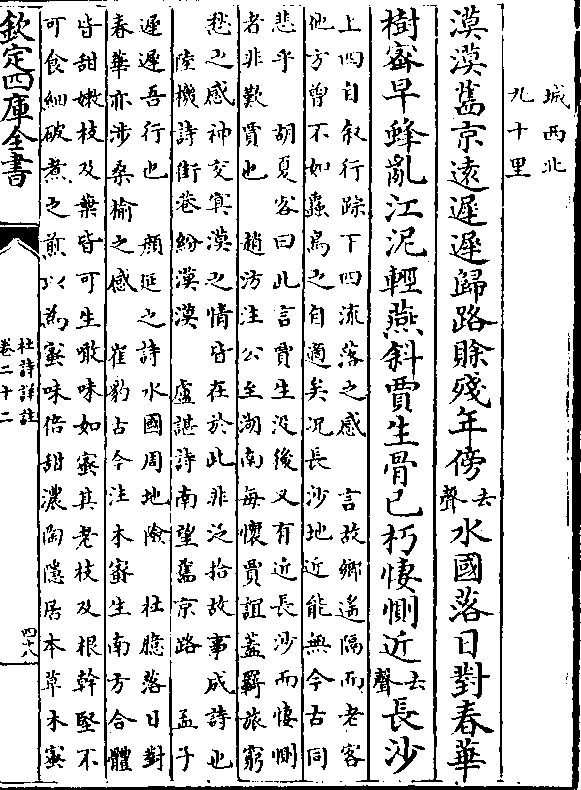 城西北
九十里
漠漠舊京遠遲遲歸路賖殘年傍去聲水國落日對春華
樹蜜早蜂亂江泥輕燕斜賈生骨已朽悽惻近去聲長沙
上四自叙行踪下四流落之感　言故鄉遙隔而老客
他方曾不如蟲鳥之自適矣况長沙地近能無今古同
悲乎　胡夏客曰此言賈生没後又有近長沙而悽惻
者非歎賈也　趙汸注公至湖南每懷賈誼盖羇旅窮
愁之感神交冥漠之情皆在於此非泛拾故事成詩也
陸機詩街巷紛漠漠　盧諶詩南望舊京路　孟子
遲遲吾行也　顔延之詩水國周地險　杜臆落日對
春華亦涉桑榆之感　崔豹古今注木蜜生南方合體
皆甜嫩枝及葉皆可生噉味如蜜其老枝及根幹堅不
可食細破煮之煎以為蜜味倍甜濃陶隱居本草木蜜
欽定四庫全書
杜詩詳註
卷二十二
四十八